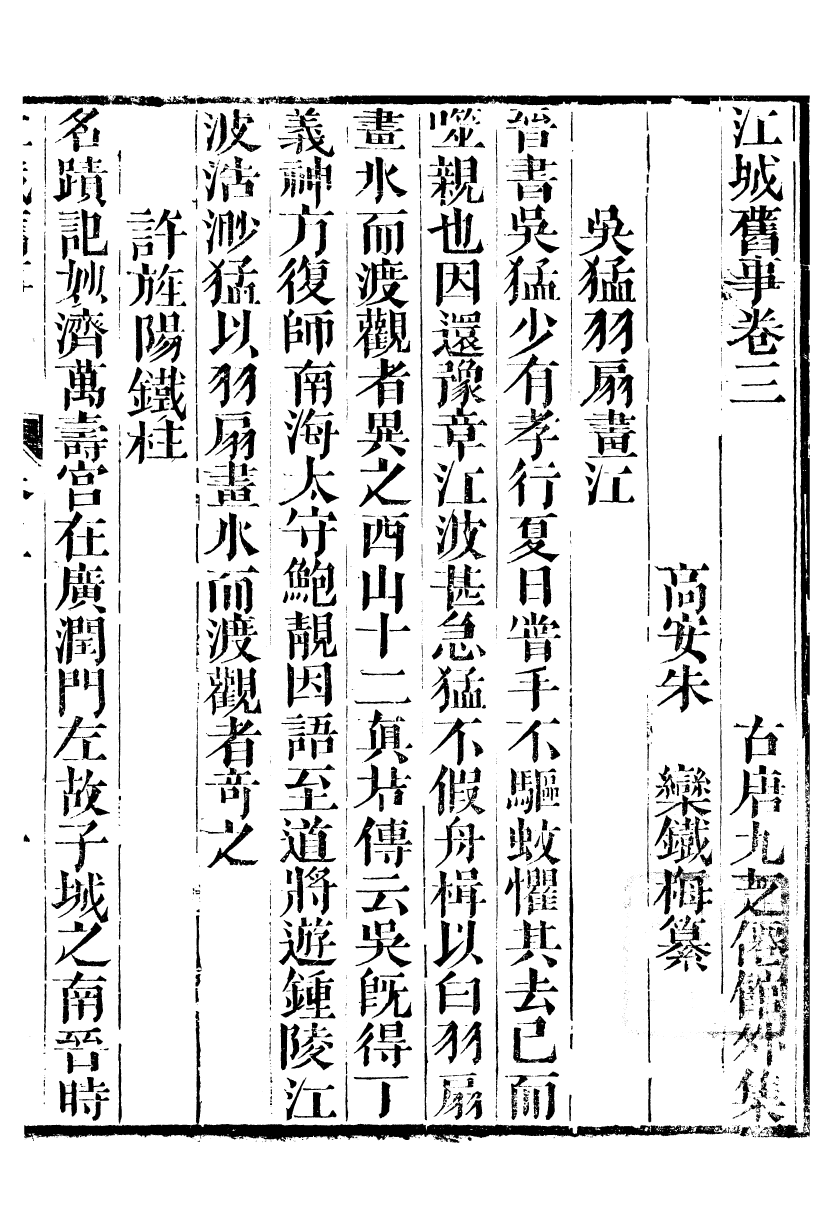 江城舊事卷三
古唐九芝僊館外集
高安朱　欒鐵梅纂
吳猛羽扇畫江
晉書吳猛少有孝行夏日嘗手不驅蚊懼其去己而
噬親也因還豫章江波甚急猛不假舟楫以白羽扇
畫水而渡觀者異之西山十二眞君傳云吳旣得丁
義神方復師南海太守鮑靚因語至道將遊鍾陵江
波浩渺猛以羽扇畫水而渡觀者奇之
許旌陽鐵柱
名蹟記妙濟萬壽宮在廣潤門左故子城之南晉時